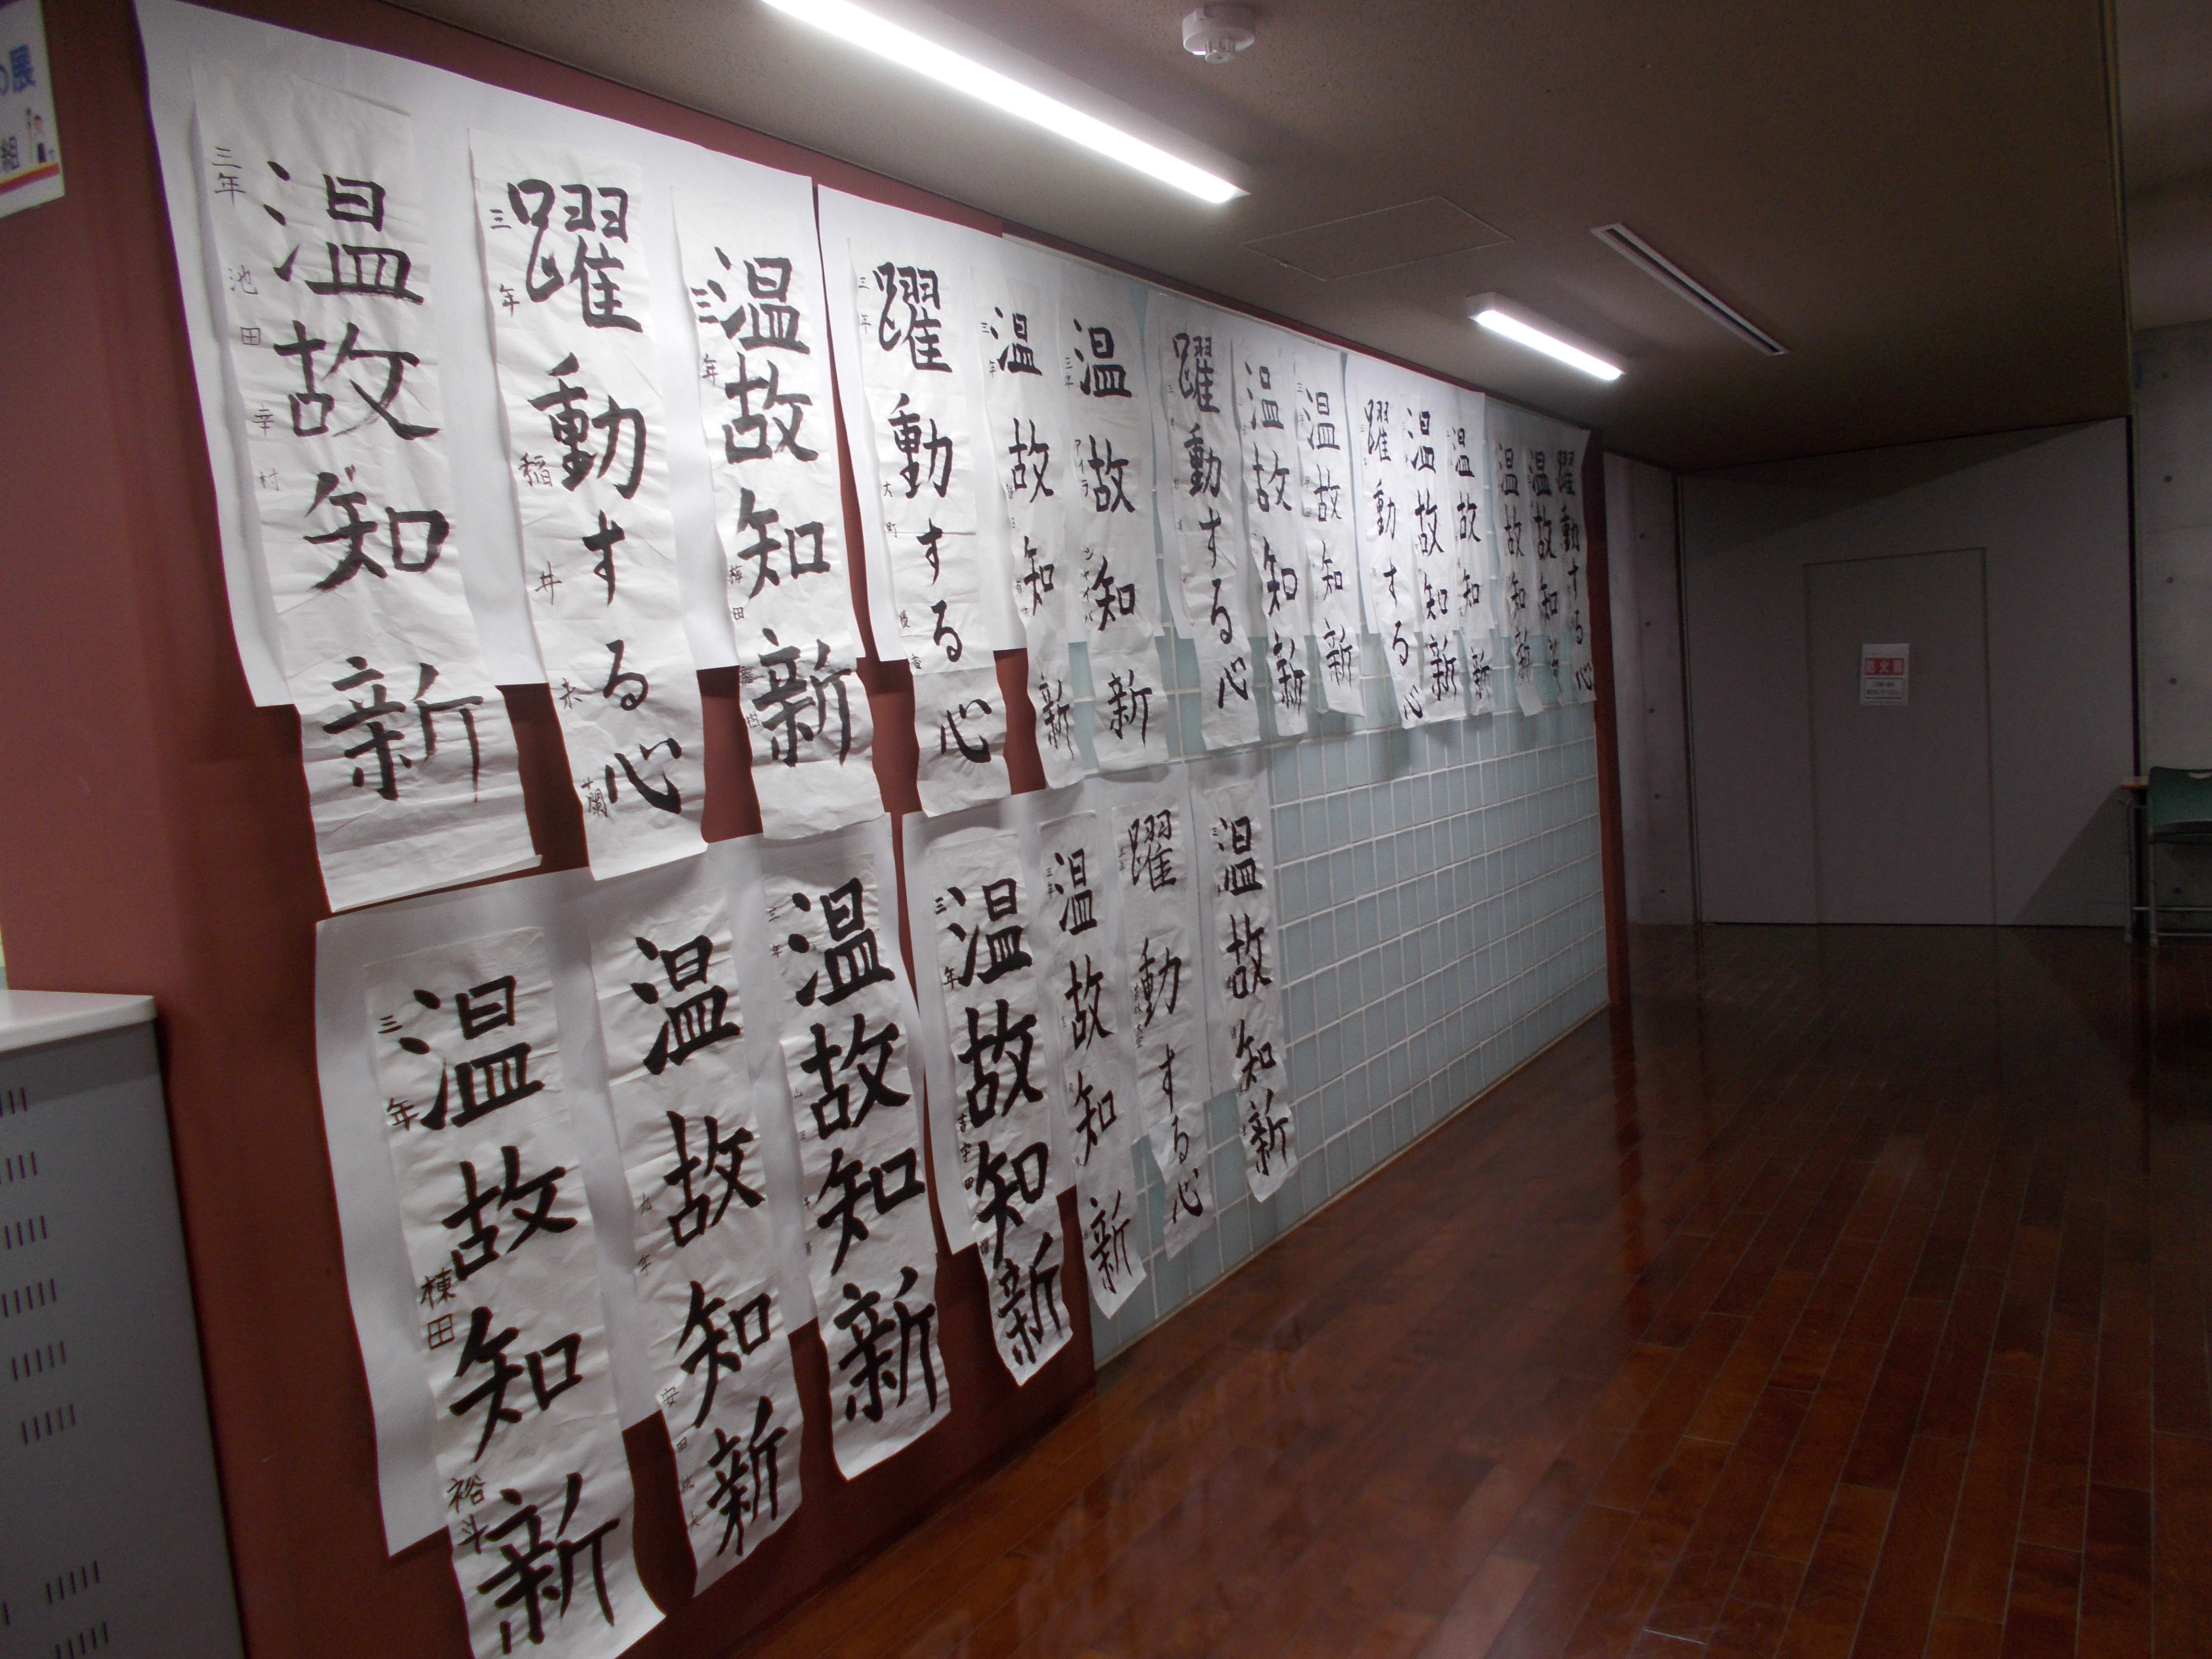 の展
組
三年 池田幸村
温故知新
三年 稲井未蘭
躍動する心
三年 梅田
温故知新
三年 大町優
躍動する心
三年
温故知新
三年 アイラ
温故知新
躍動する心
温故知新
温故知新
躍動する心
温故知新
温故知新
温故知新
温故知新
躍動する心
三年 棟田裕斗
温故知新
九年 安田
温故知新
三年 山田
温故知新
三年 吉宇田
温故知新
三年
温故知新
三年
躍動する心
三年
温故知新
防火扉